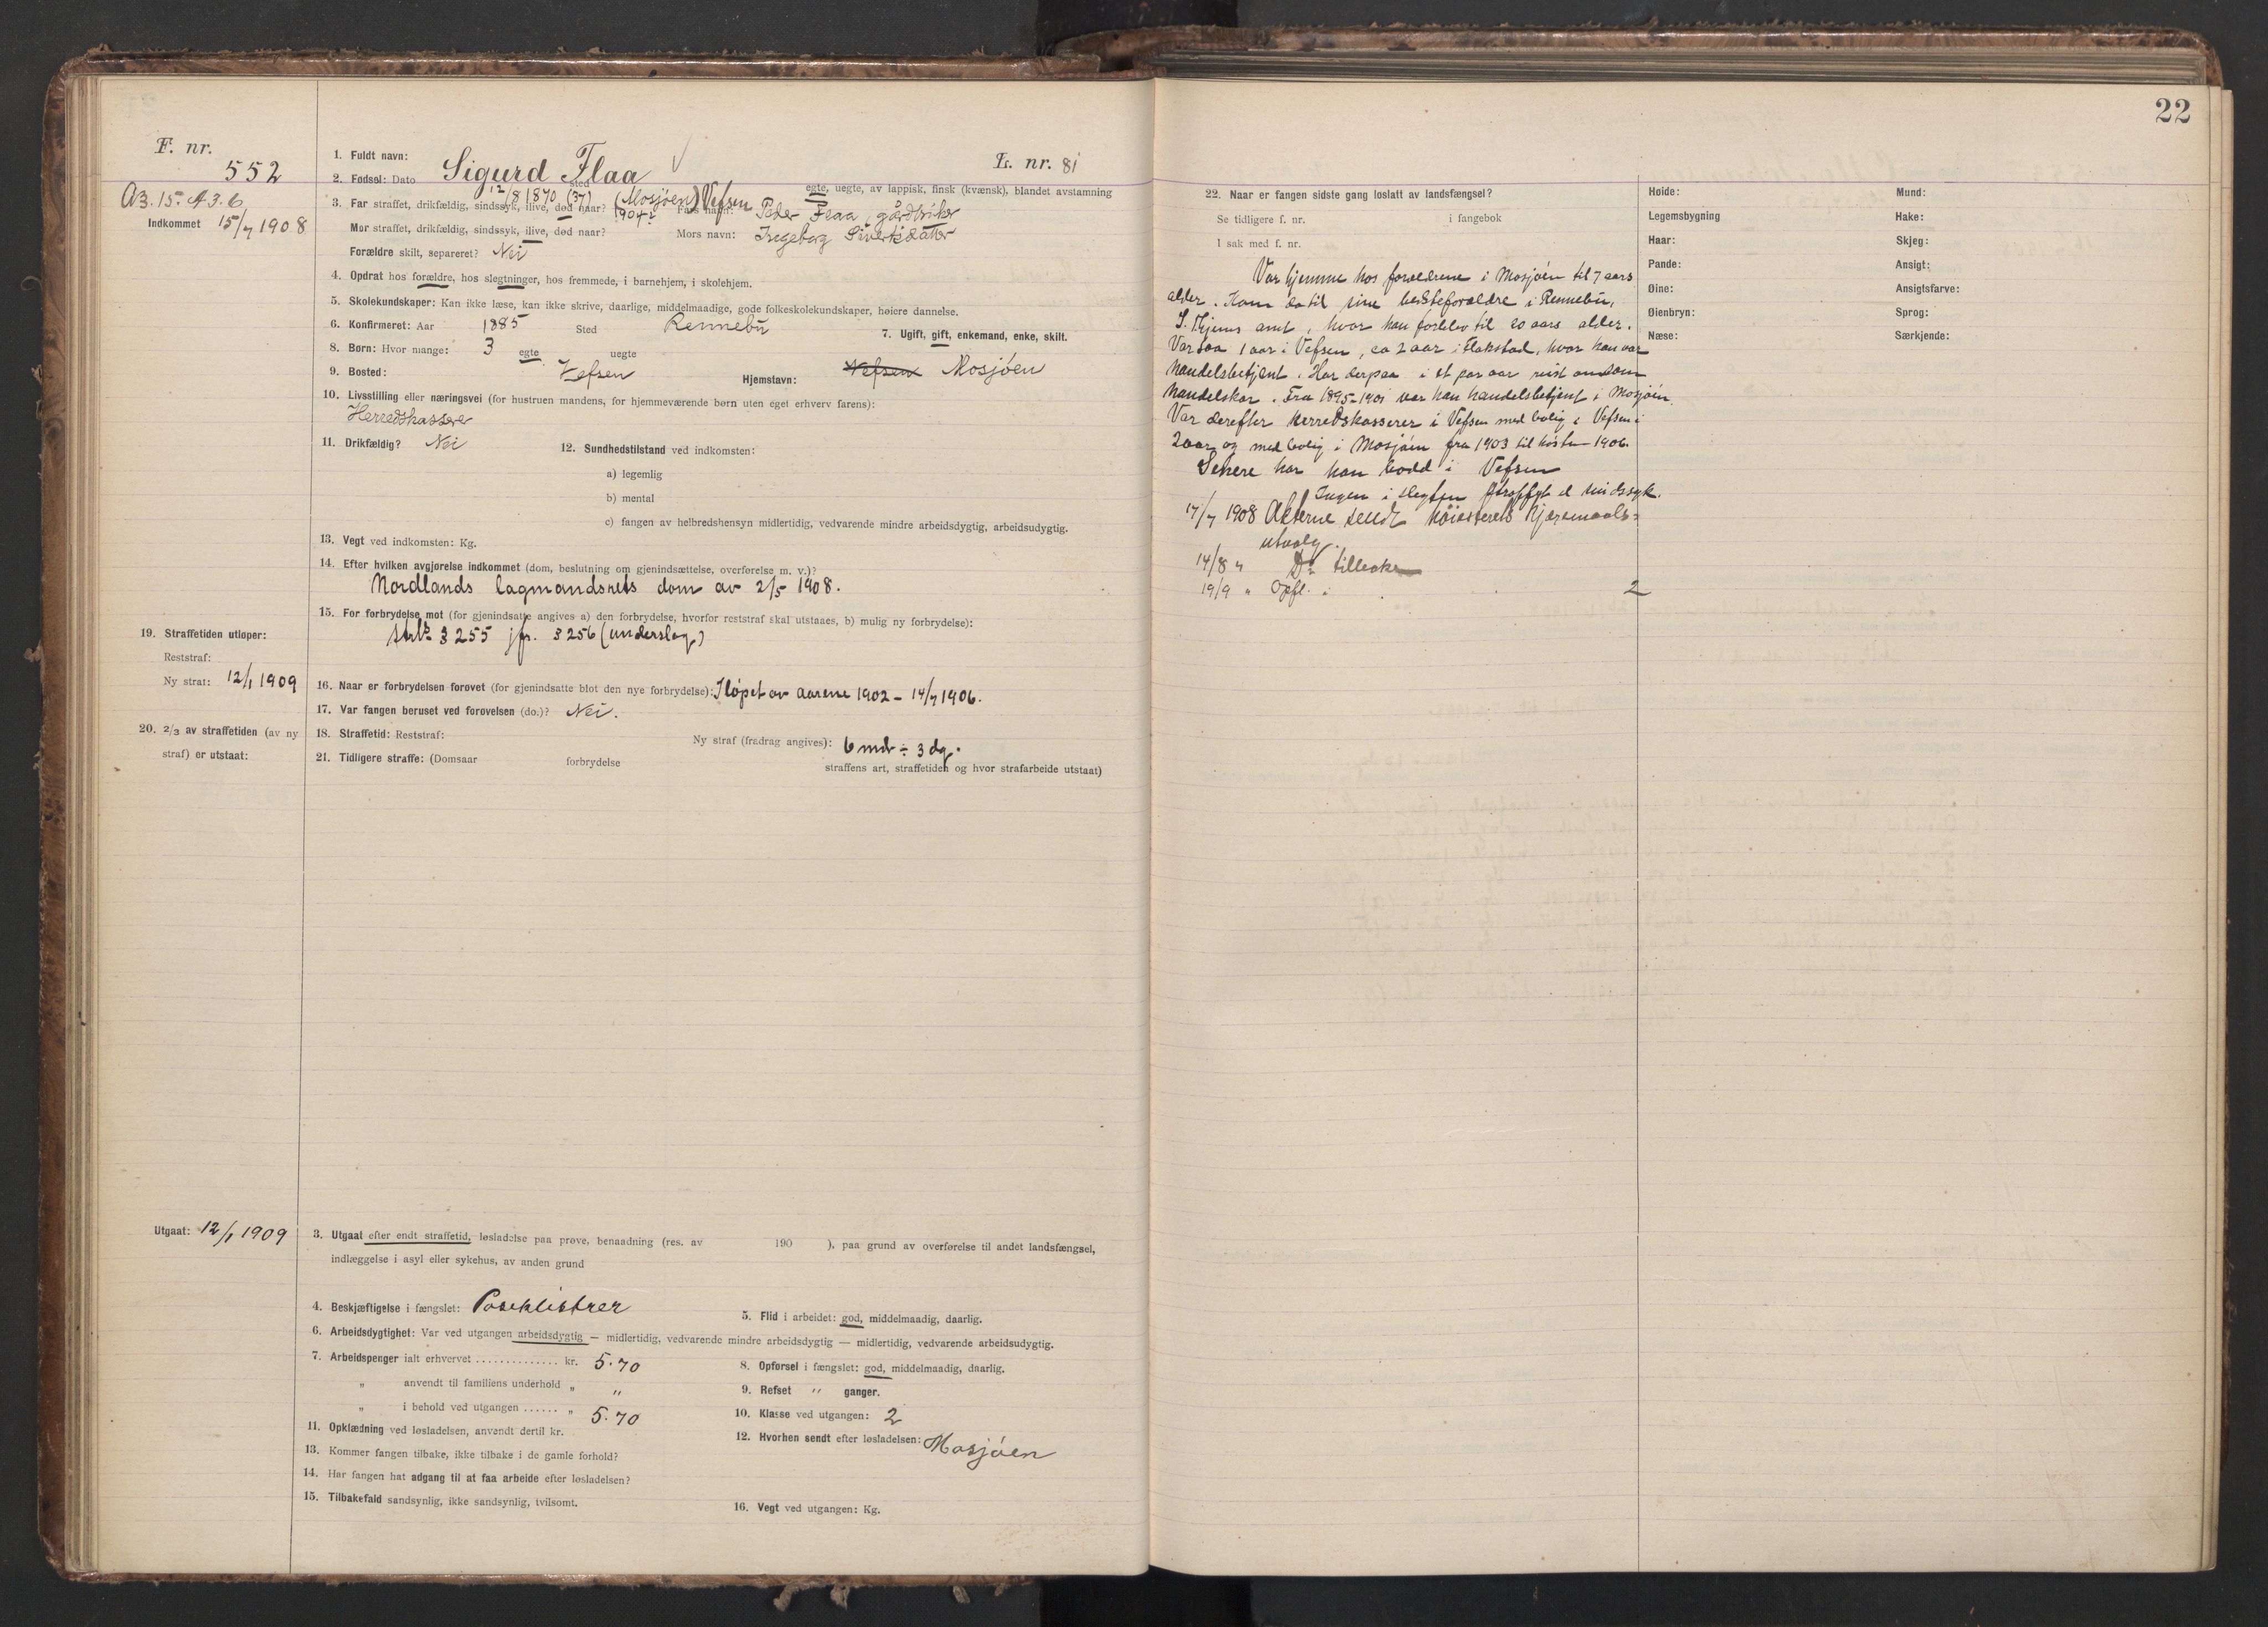 22
F. nr. 552
A3. 15. A 3. 6
Indkommet 15/7 1908
L. nr. 81
1. Fuldt navn: Sigurd Flaa
2. Fødsel: Dato 12/8 1870 (37) sted (Mosjøen) Vefsen egte, uegte, av lappisk, finsk (kvænsk), blandet avstamning
3. Far straffet, drikfældig, sindssyk, ilive, død naar? 1904 Fars navn: Peder Flaa, gårdbruker
Mor straffet, drikfældig, sindssyk, ilive, død naar? Mors navn: Ingeborg Sivertsdatter
Forældre skilt, separeret? Nei
4. Opdrat hos forældre, hos slegtninger, hos fremmede, i barnehjem, i skolehjem.
5. Skolekundskaper: Kan ikke læse, kan ikke skrive, daarlige, middelmaadige, gode folkeskolekundskaper, høiere dannelse.
6. Konfirmeret: Aar 1885 Sted Rennebu 7. Ugift, gift, enkemand, enke, skilt.
8. Børn: Hvor mange: 3 egte uegte
9. Bosted: Vefsen Hjemstavn: Vefsen Mosjøen
10. Livsstilling eller næringsvei (for hustruen mandens, for hjemmeværende børn uten eget erhverv farens):
Herredskasserer
11. Drikfældig? Nei 12. Sundhedstilstand ved indkomsten:
a) legemlig
b) mental
c) fangen av helbredshensyn midlertidig, vedvarende mindre arbeidsdygtig, arbeidsudygtig.
13. Vegt ved indkomsten: Kg.
14. Efter hvilken avgjørelse indkommet (dom, beslutning om gjenindsættelse, overførelse m. v.)?
Nordlands lagmandsrets dom av 2/5 1908.
15. For forbrydelse mot (for gjenindsatte angives a) den forbrydelse, hvorfor reststraf skal utstaaes, b) mulig ny forbrydelse):
strl. § 255 jfr. § 256 (underslag)
19. Straffetiden utløper:
Reststraf:
Ny straf: 12/1 1909
16. Naar er forbrydelsen forøvet (for gjenindsatte blot den nye forbrydelse): I løpet av aarene 1902 – 14/7 1906.
17. Var fangen beruset ved forøvelsen (do.)? Nei.
20. 2/3 av straffetiden (av ny
straf) er utstaat:
18. Straffetid: Reststraf: Ny straf (fradrag angives): 6 md ÷ 3 dg.
21. Tidligere straffe: (Domsaar forbrydelse straffens art, straffetiden og hvor strafarbeide utstaat)
Utgaat: 12/1 1909
3. Utgaat efter endt straffetid, løsladelse paa prøve, benaadning (res. av 190 ), paa grund av overførelse til andet landsfængsel,
indlæggelse i asyl eller sykehus, av anden grund
4. Beskjæftigelse i fængslet: Poseklistrer 5. Flid i arbeidet: god, middelmaadig, daarlig.
6. Arbeidsdygtighet: Var ved utgangen arbeidsdygtig — midlertidig, vedvarende mindre arbeidsdygtig — midlertidig, vedvarende arbeidsudygtig.
7. Arbeidspenger ialt erhvervet .............. kr. 5.70 8. Opførsel i fængslet: god, middelmaadig, daarlig.
„ anvendt til familiens underhold „ „ 9. Refset „ ganger.
„ i behold ved utgangen ...... „ 5.70 10. Klasse ved utgangen: 2
11. Opklædning ved løsladelsen, anvendt dertil kr. 12. Hvorhen sendt efter løsladelsen: Mosjøen
13. Kommer fangen tilbake, ikke tilbake i de gamle forhold?
14. Har fangen hat adgang til at faa arbeide efter løsladelsen?
15. Tilbakefald sandsynlig, ikke sandsynlig, tvilsomt. 16. Vegt ved utgangen: Kg.
22. Naar er fangen sidste gang løslatt av landsfængsel?
Se tidligere f. nr. i fangebok
I sak med f. nr.
Var hjemme hos forældrene i Mosjøen til 7 aars
alder. Kom da til sine bedsteforældre i Rennebu,
S. Thjems amt, hvor han forblev til 20 aars alder.
Var saa 1 aar i Vefsen, ca 2 aar i Flakstad, hvor han var
handelsbetjent. Har derpaa i et par aar reist om som
handelskar. Fra 1895–1901 var han handelsbetjent i Mosjøen.
Var derefter Herredskasserer i Vefsen med bolig i Vefsen i
2 aar og med bolig i Mosjøen fra 1903 til høsten 1906.
Senere har han bodd i Vefsen
Ingen i slegten straffet el sindssyk.
17/7 1908 Akterne sendt Høiesterets Kjæremaals=
utvalg.
14/8 „ Do tilbake
19/9 „ Opfl. : 2
Høide: Mund:
Legemsbygning Hake:
Haar: Skjeg:
Pande: Ansigt:
Øine: Ansigtsfarve:
Øienbryn: Sprog:
Næse: Særkjende: